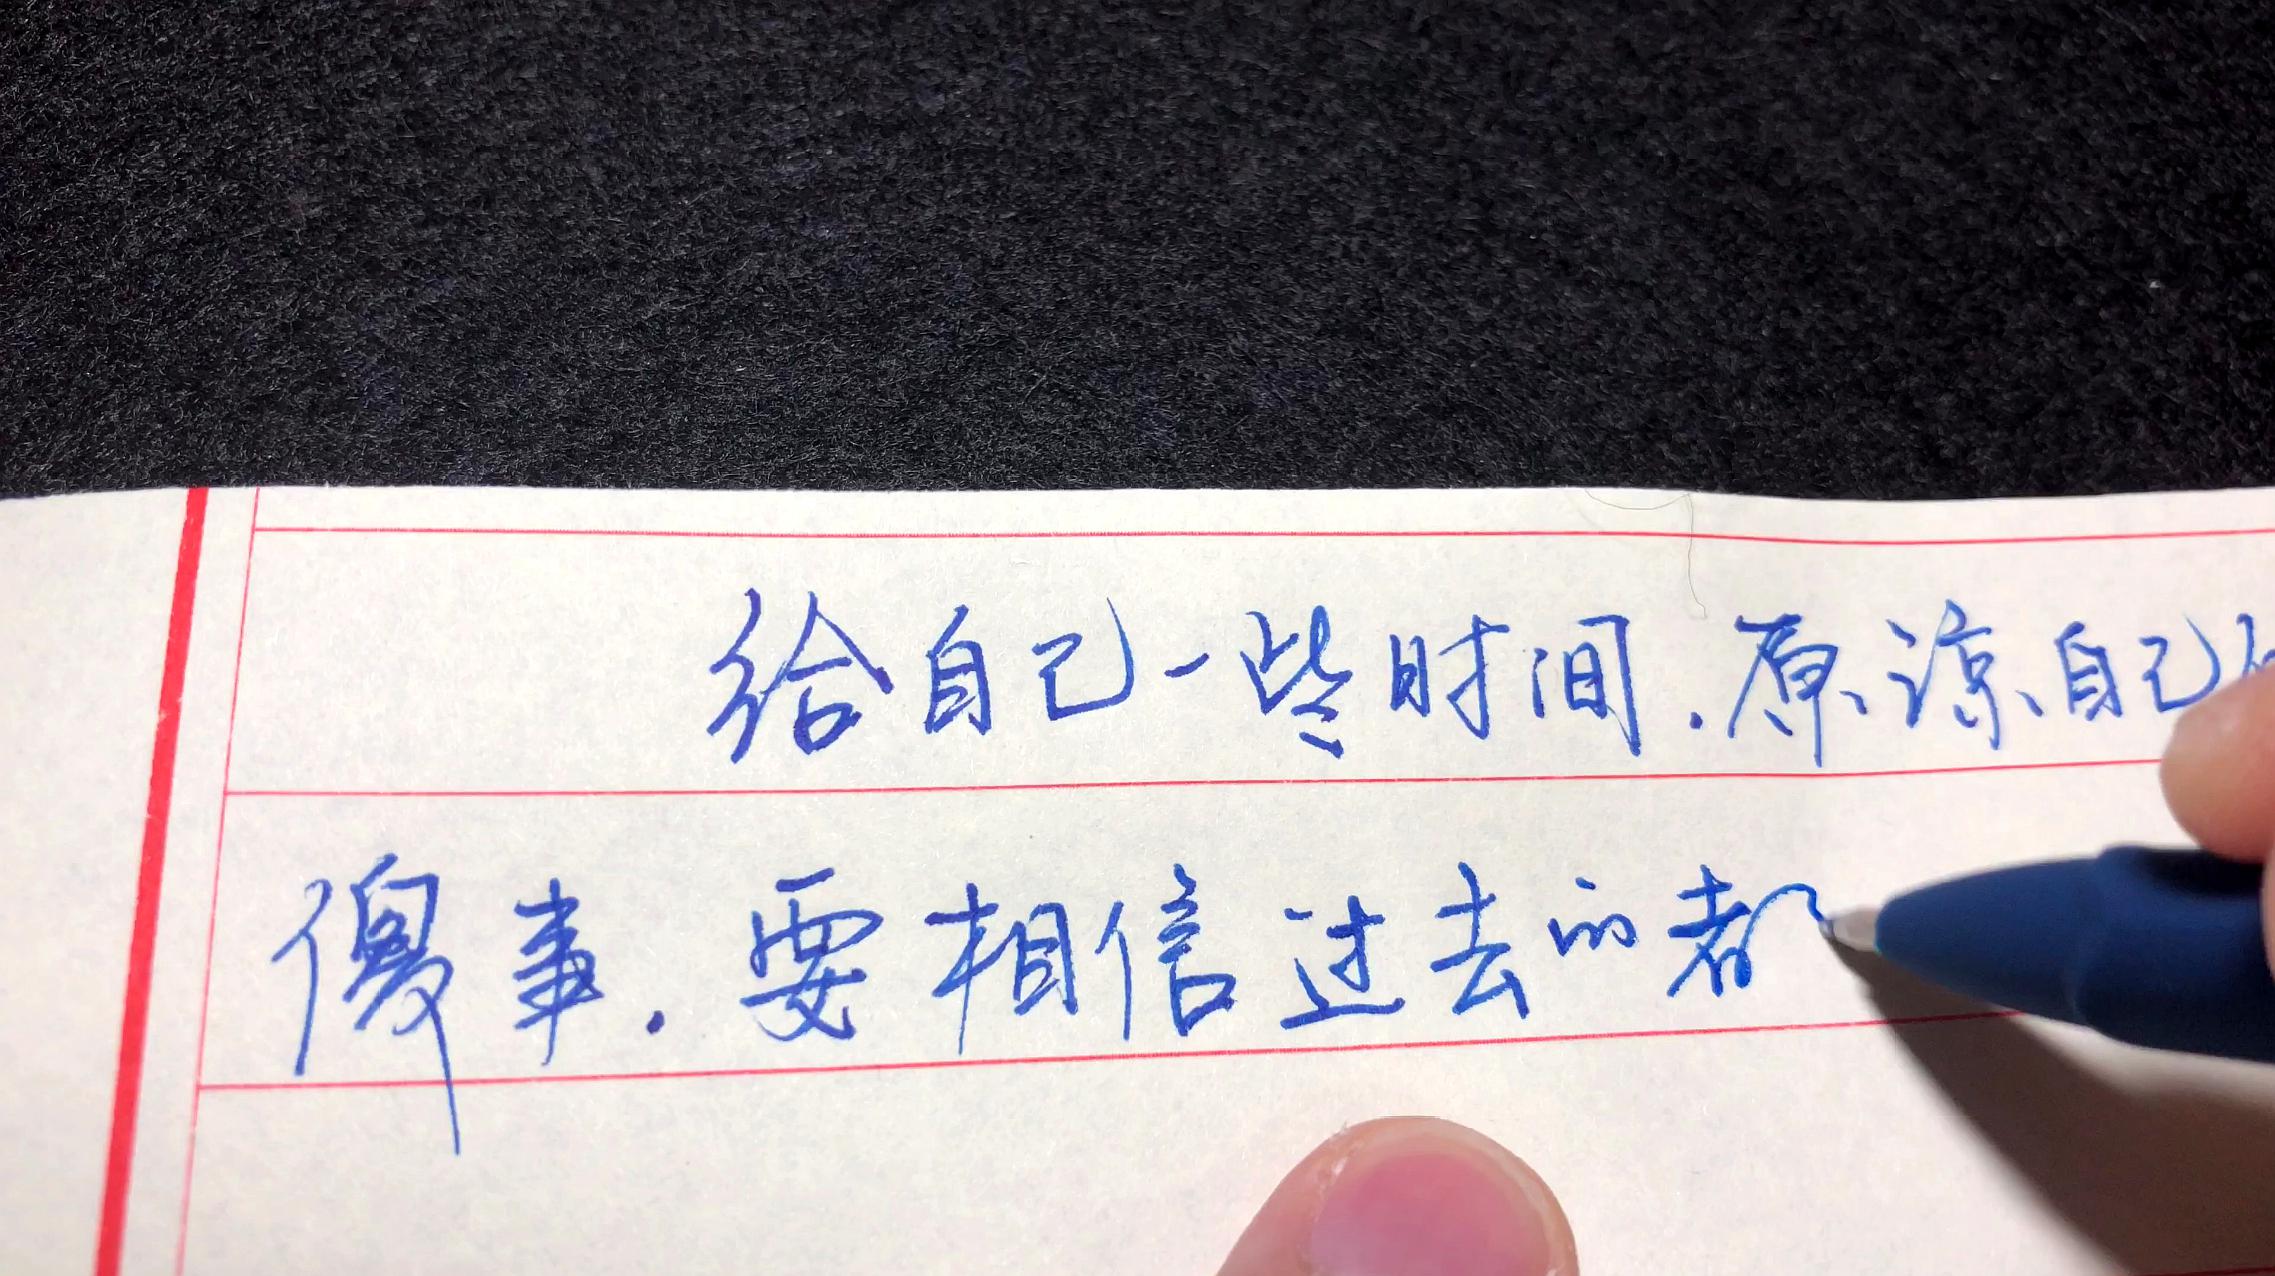 给自己一些时间.原谅自己
傻事.要相信过去的都